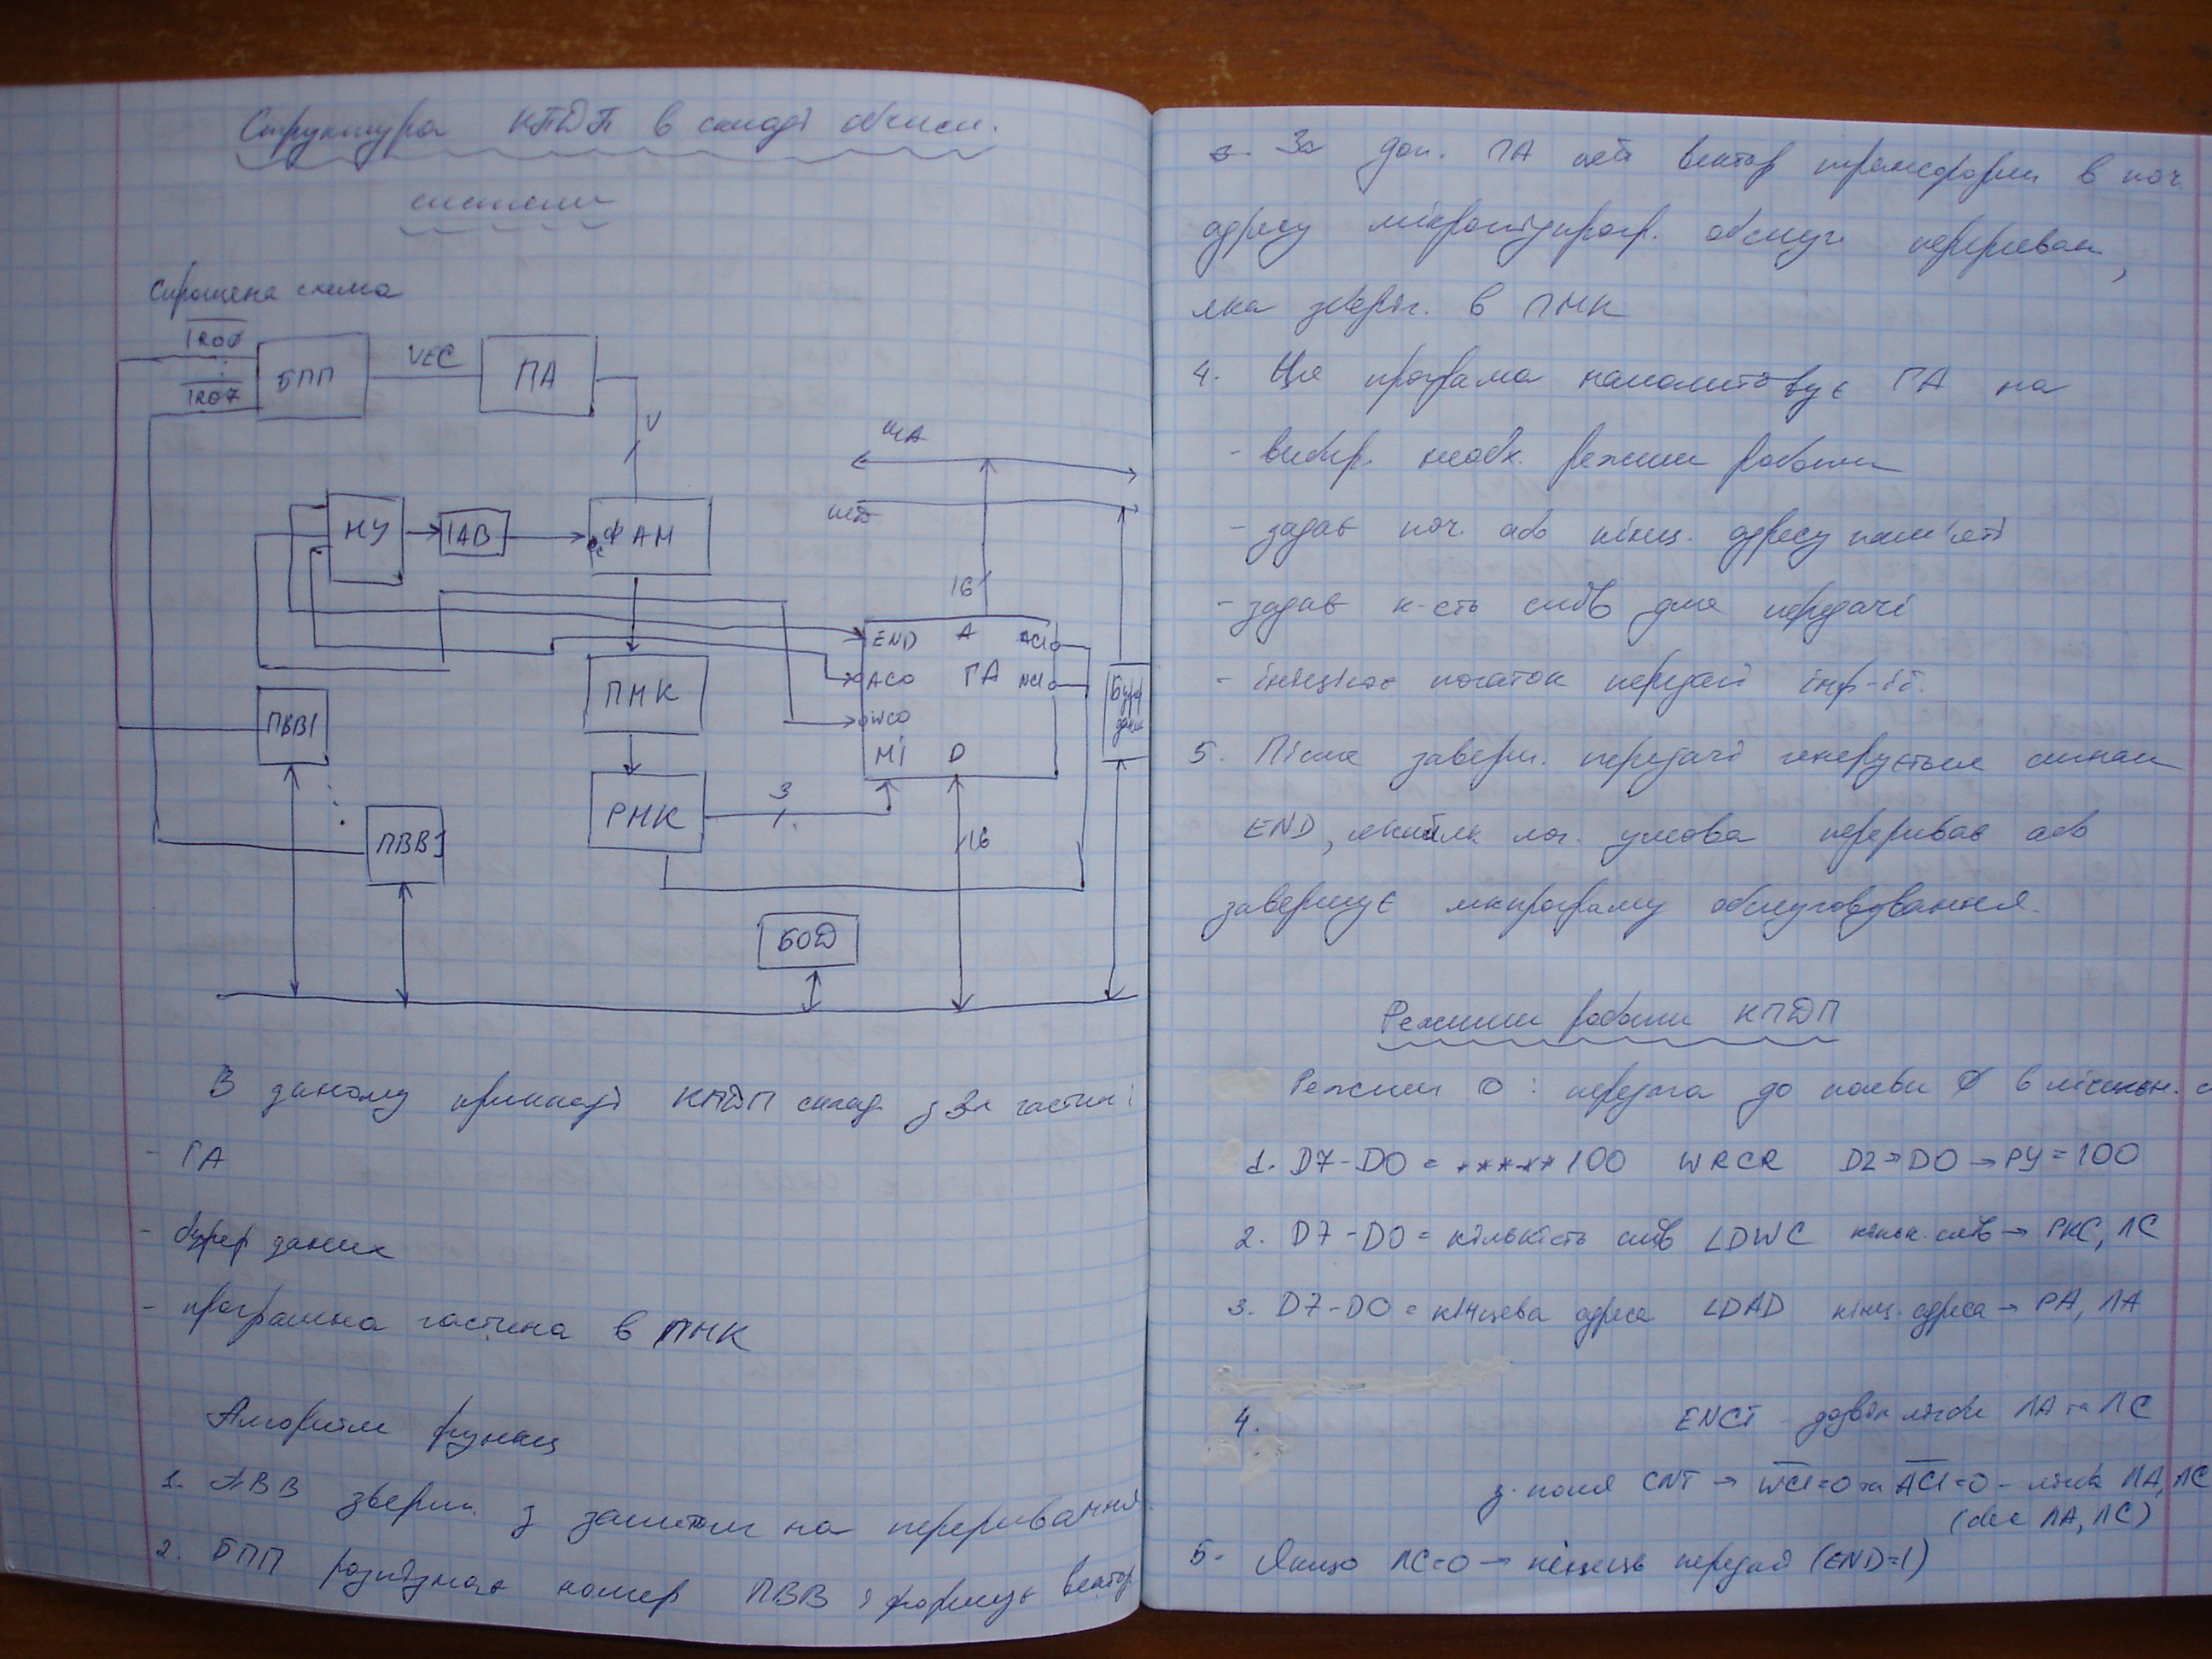 Структура КПДП в складі обчисл.
системи
Спрощена схема
IRQ0
IRQ7
БПП
VEC
ПА
V
ША
ШД
НУ
IAB
ФАМ
16
END A ACI
ACO ГА WCI
WCO
MI D
Буф даних
ПМК
ПВВ1
РМК
3
ПВВ
16
БОД
В даному прикладі КПДП склад. з 3х частин:
- ГА
- буфер даних
- програмна частина в ПМК
Алгоритм функц
1. ПВВ зверт. з запитом на переривання
2. БПП розпізнає номер ПВВ і формує вектор
3. За доп. ПА цей вектор трансформ в поч.
адресу мікропідпрогр. обслуг переривань,
яка зберіг. в ПМК
4. Ця програма налаштовує ГА на
- вибір. необх. режим роботи
- задає поч. або кінц. адресу пам'яті
- задає к-сть слів для передачі
- ініціює початок передачі інф-ії.
5. Після заверш. передачі генерується сигнал
END, який як лог. умова перериває або
завершує мікпрограму обслуговування.
Режими роботи КПДП
Режим 0: передача до появи 0 в лічильн. с
1. D7-D0 = *****100 WRCR D2→D0→РУ=100
2. D7-D0 = кількість слів LDWC кільк. слів → РКС, ЛС
3. D7-D0 = кінцева адреса LDAD кінц. адреса → РА, ЛА
4. ENCT - дозвіл лічби ЛА та ЛС
з поля CNT → WCI=0 та ACI=0 - лічба ЛА, ЛС
(dec ЛА, ЛС)
5. Якщо ЛС=0 → кінець передачі (END=1)